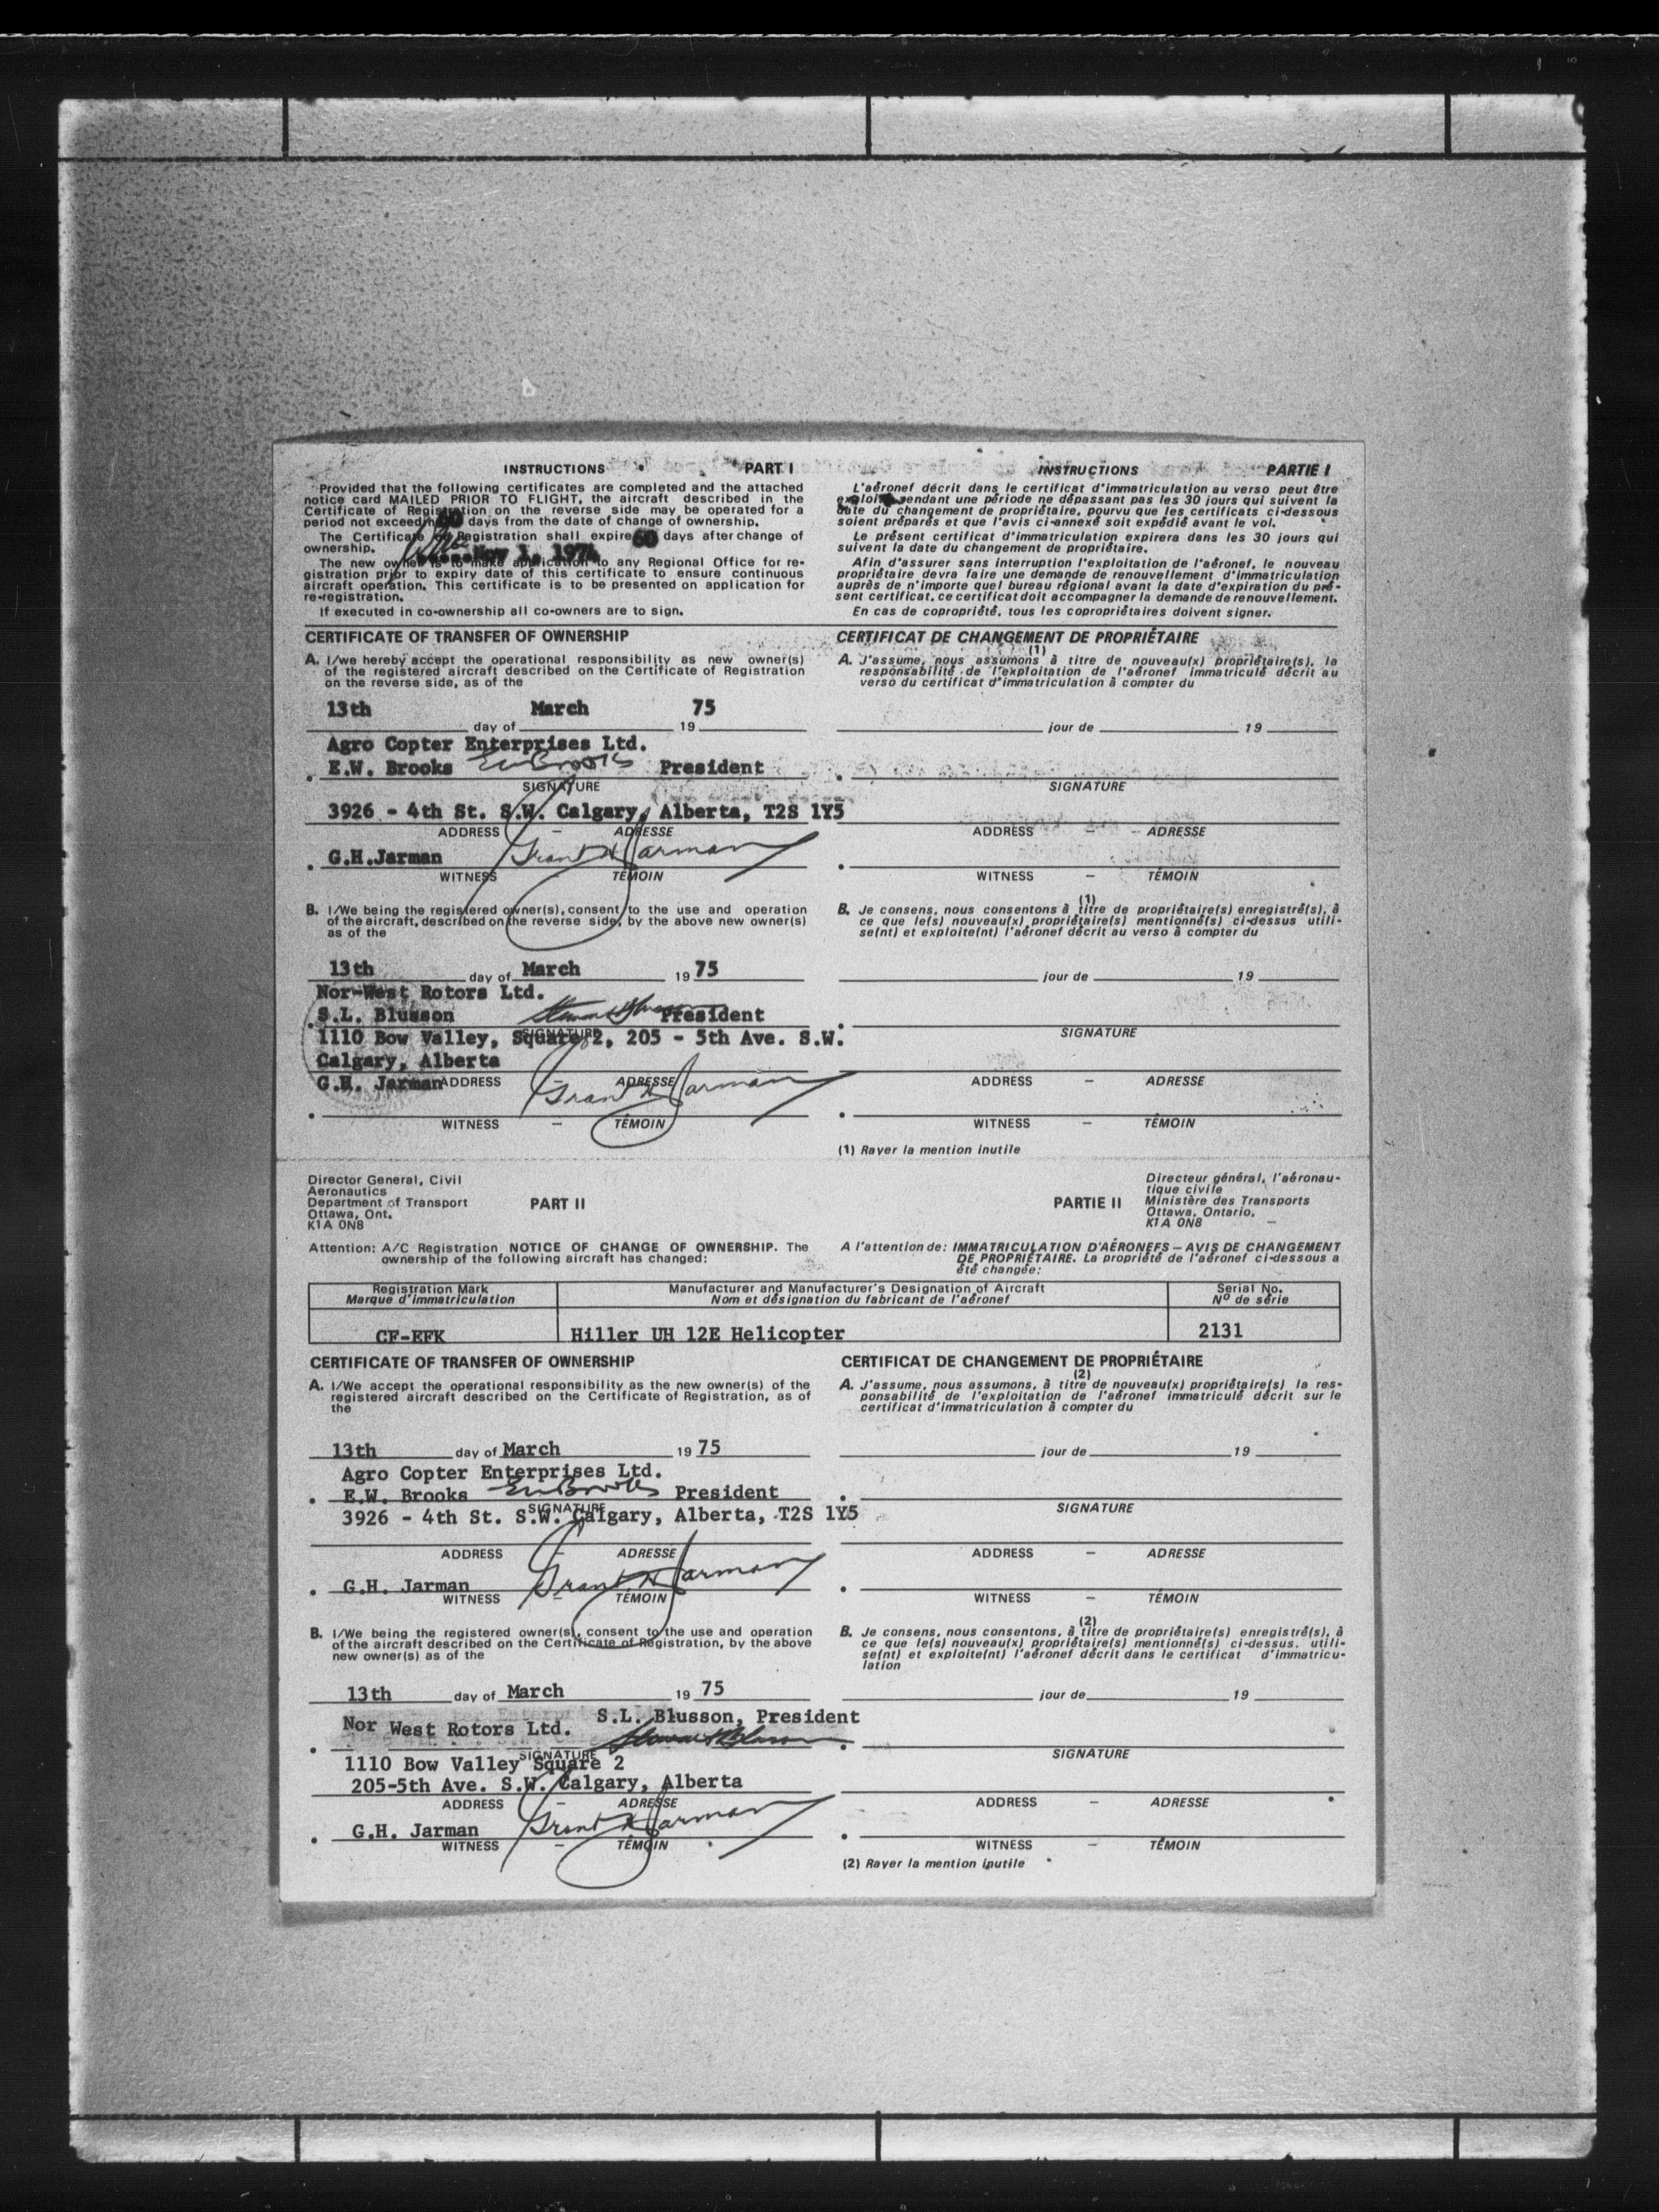 INSTRUCTIONS PART I
Provided that the following certificates are completed and the attached
notice card MAILED PRIOR TO FLIGHT, the aircraft described in the
Certificate of Registration on the reverse side may be operated for a
period not exceeding 60 days from the date of change of ownership.
The Certificate of Registration shall expire 60 days after change of
ownership.
Nov 1, 1974
The new owner is to make application to any Regional Office for re-
gistration prior to expiry date of this certificate to ensure continuous
aircraft operation. This certificate is to be presented on application for
re-registration.
If executed in co-ownership all co-owners are to sign.
INSTRUCTIONS PARTIE I
L'aéronef décrit dans le certificat d'immatriculation au verso peut être
exploité pendant une période ne dépassant pas les 30 jours qui suivent la
date du changement de propriétaire, pourvu que les certificats ci-dessous
soient préparés et que l'avis ci-annexé soit expédié avant le vol.
Le présent certificat d'immatriculation expirera dans les 30 jours qui
suivent la date du changement de propriétaire.
Afin d'assurer sans interruption l'exploitation de l'aéronef, le nouveau
propriétaire devra faire une demande de renouvellement d'immatriculation
auprès de n'importe quel bureau régional avant la date d'expiration du pré-
sent certificat, ce certificat doit accompagner la demande de renouvellement.
En cas de copropriété, tous les copropriétaires doivent signer.
CERTIFICATE OF TRANSFER OF OWNERSHIP
A. I/we hereby accept the operational responsibility as new owner(s)
of the registered aircraft described on the Certificate of Registration
on the reverse side, as of the
13th day of March 19 75
Agro Copter Enterprises Ltd.
E.W. Brooks EW Brooks President
SIGNATURE
3926 - 4th St. S.W. Calgary, Alberta, T2S 1Y5
ADDRESS – ADRESSE
G.H.Jarman Grant H Jarman
WITNESS – TÉMOIN
B. I/We being the registered owner(s), consent to the use and operation
of the aircraft, described on the reverse side, by the above new owner(s)
as of the
13th day of March 19 75
Nor-West Rotors Ltd.
S.L. Blusson President
SIGNATURE
1110 Bow Valley, Square 2, 205 - 5th Ave. S.W.
Calgary, Alberta
G.H. Jarman ADDRESS – ADRESSE
Grant H Jarman
WITNESS – TÉMOIN
CERTIFICAT DE CHANGEMENT DE PROPRIÉTAIRE
(1)
A. J'assume, nous assumons à titre de nouveau(x) propriétaire(s), la
responsabilité de l'exploitation de l'aéronef immatriculé décrit au
verso du certificat d'immatriculation à compter du
jour de 19
SIGNATURE
ADDRESS – ADRESSE
WITNESS – TÉMOIN
(1)
B. Je consens, nous consentons à titre de propriétaire(s) enregistré(s), à
ce que le(s) nouveau(x) propriétaire(s) mentionné(s) ci-dessus utili-
se(nt) et exploite(nt) l'aéronef décrit au verso à compter du
jour de 19
SIGNATURE
ADDRESS – ADRESSE
WITNESS – TÉMOIN
(1) Rayer la mention inutile
Director General, Civil
Aeronautics
Department of Transport
Ottawa, Ont.
K1A 0N8
PART II
PARTIE II
Directeur général, l'aéronau-
tique civile
Ministère des Transports
Ottawa, Ontario,
K1A 0N8
Attention: A/C Registration NOTICE OF CHANGE OF OWNERSHIP. The
ownership of the following aircraft has changed:
A l'attention de: IMMATRICULATION D'AÉRONEFS – AVIS DE CHANGEMENT
DE PROPRIÉTAIRE. La propriété de l'aéronef ci-dessous a
été changée:
Registration Mark Manufacturer and Manufacturer's Designation of Aircraft Serial No.
Marque d'immatriculation Nom et désignation du fabricant de l'aéronef Nº de série
CF-EFK Hiller UH 12E Helicopter 2131
CERTIFICATE OF TRANSFER OF OWNERSHIP
A. I/We accept the operational responsibility as the new owner(s) of the
registered aircraft described on the Certificate of Registration, as of
the
13th day of March 19 75
Agro Copter Enterprises Ltd.
E.W. Brooks EW Brooks President
SIGNATURE
3926 - 4th St. S.W. Calgary, Alberta, T2S 1Y5
ADDRESS – ADRESSE
G.H. Jarman Grant H Jarman
WITNESS – TÉMOIN
B. I/We being the registered owner(s), consent to the use and operation
of the aircraft described on the Certificate of Registration, by the above
new owner(s) as of the
13th day of March 19 75
Nor West Rotors Ltd. S.L. Blusson, President
SIGNATURE
1110 Bow Valley Square 2
205-5th Ave. S.W. Calgary, Alberta
ADDRESS – ADRESSE
G.H. Jarman Grant H Jarman
WITNESS – TÉMOIN
CERTIFICAT DE CHANGEMENT DE PROPRIÉTAIRE
(2)
A. J'assume, nous assumons, à titre de nouveau(x) propriétaire(s) la res-
ponsabilité de l'exploitation de l'aéronef immatriculé décrit sur le
certificat d'immatriculation à compter du
jour de 19
SIGNATURE
ADDRESS – ADRESSE
WITNESS – TÉMOIN
(2)
B. Je consens, nous consentons, à titre de propriétaire(s) enregistré(s), à
ce que le(s) nouveau(x) propriétaire(s) mentionné(s) ci-dessus. utili-
se(nt) et exploite(nt) l'aéronef décrit dans le certificat d'immatricu-
lation
jour de 19
SIGNATURE
ADDRESS – ADRESSE
WITNESS – TÉMOIN
(2) Rayer la mention inutile